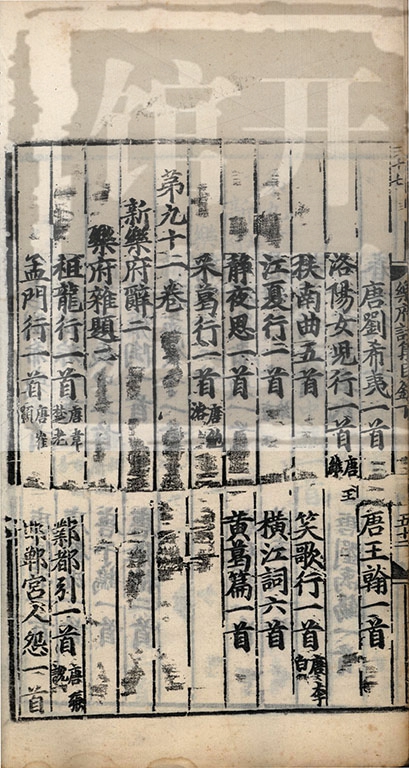 唐劉希夷一首 唐王翰一首
洛陽女兒行一首 唐王維
扶南曲五首 笑歌行一首 唐李白
江夏行一首 橫江詞六首
靜夜思一首 黃葛篇一首
采葛行一首 唐鮑溶
第九十一卷
新樂府辭二
樂府雜題二
祖龍行一首 唐韋楚老 鄴都引一首 唐張說
孟門行一首 唐崔顥 邯鄲宮人怨一首
樂府詩集目錄下